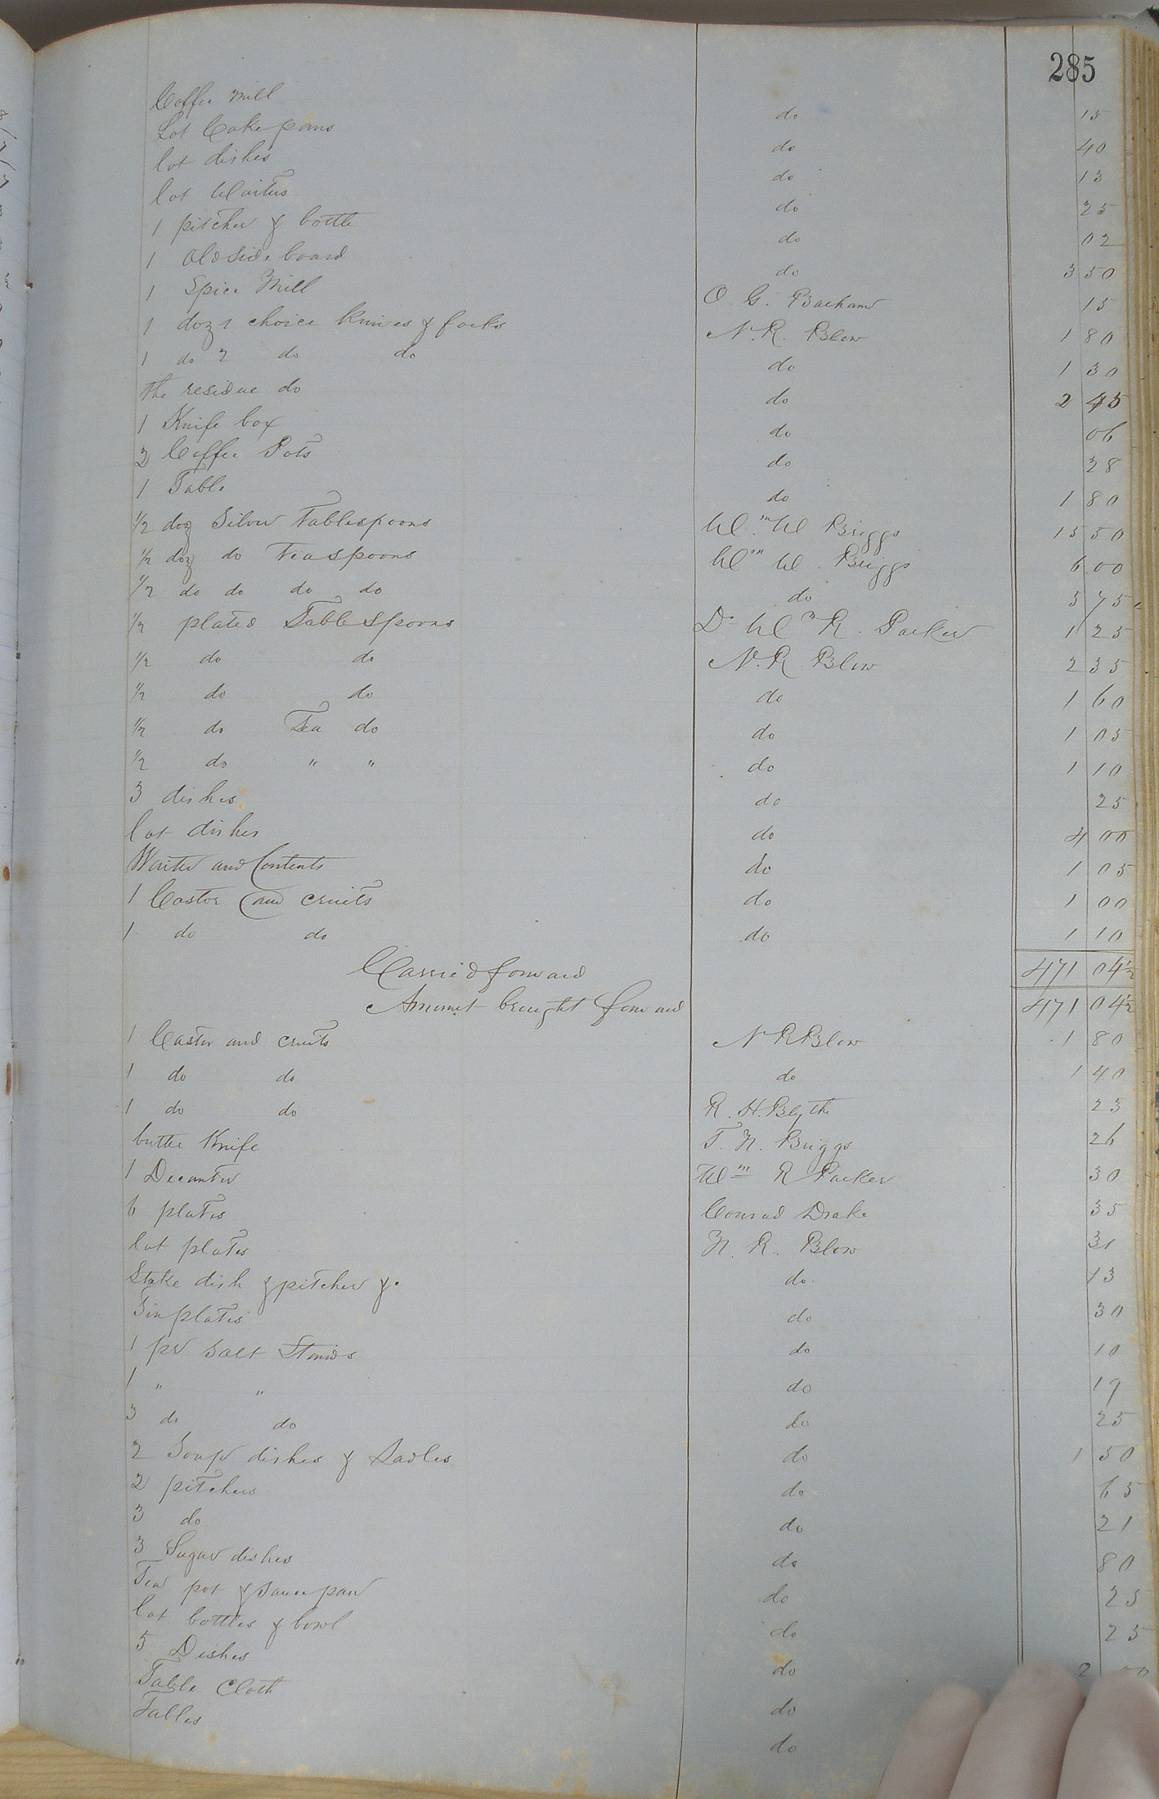 285
Coffee Mill do 15
Lot Cake pans do 40
lot dishes do 13
lot Waiters do 25
1 pitcher & bottle do 02
1 Old Side board do 3 50
1 Spice Mill O. G. 15
1 doz 1 choice Knives & forks N. R. Blow 1 80
1 do 2 do do do 1 30
the residue do do 2 45
1 Knife box do 06
2 Coffee Pots do 28
1 Table do 1 80
1/2 doz Silver Tablespoons Wm W Briggs 15 50
1/2 doz do Teaspoons Wm W. Briggs 6 00
1/2 do do do do do 5 75
1/2 plated Table Spoons Dr Wm R. Parker 1 25
1/2 do do N. R. Blow 2 35
1/2 do do do 1 60
1/2 do Tea do do 1 05
1/2 do " " do 1 10
3 dishes do 25
lot dishes do 4 00
Waiter and Contents do 1 05
1 Castor and cruits do 1 00
1 do do do 1 10
Carried forward 471 04 1/2
Amount brought forward 471 04 1/2
1 Castor and cruits N R Blow 1 80
1 do do do 1 40
1 do do R. H. Blythe 23
butter Knife T. N. Briggs 26
1 Decanter Wm R Parker 30
6 plates Conrad Drake 35
lot plates N. R. Blow 31
Stake dish & pitcher &c do 13
plates do 30
1 pr Salt Stands do 10
1 " " do 19
3 do do do 25
2 Soup dishes & Ladles do 1 50
2 pitchers do 65
3 do do 21
3 Sugar dishes do 80
Tea pot & Sauce pan do 25
lot bottles & bowl do 25
5 Dishes do 2
Table Cloth do
Tables do